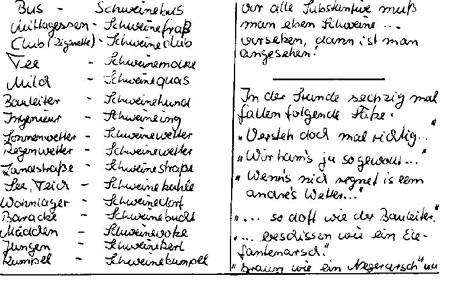 Bus - Schweinebus
Mittagessen - Schweinefraß
Club (Zigarette) - Schweineclub
Tee - Schweinemocke
Milch - Schweinequas
Bauleiter - Schweinehund
Ingenieur - Schweineing
Sonnenwetter - Schweinewetter
Regenwetter - Schweinewetter
Landstraße - Schweinestraße
See, Teich - Schweinekuhle
Wohnlager - Schweinedorf
Baracke - Schweinebucht
Mädchen - Schweine
Jungen - Schweinekerl
Kumpel - Schweinekumpel
vor alle Substantive muß
man eben Schweine ...
vorsetzen, dann ist man
angesehen!
In der Stunde sechzig mal
fallen folgende Sätze:
"Versteh doch mal richtig..."
"Wir ham's ja so gewollt..."
"Wenn's nich regnet is eem
andre's Wetter..."
"... so doft wie der Bauleiter."
"... beschissen wie ein Ele-
fantenarsch."
"braun wie ein Negerarsch" usw